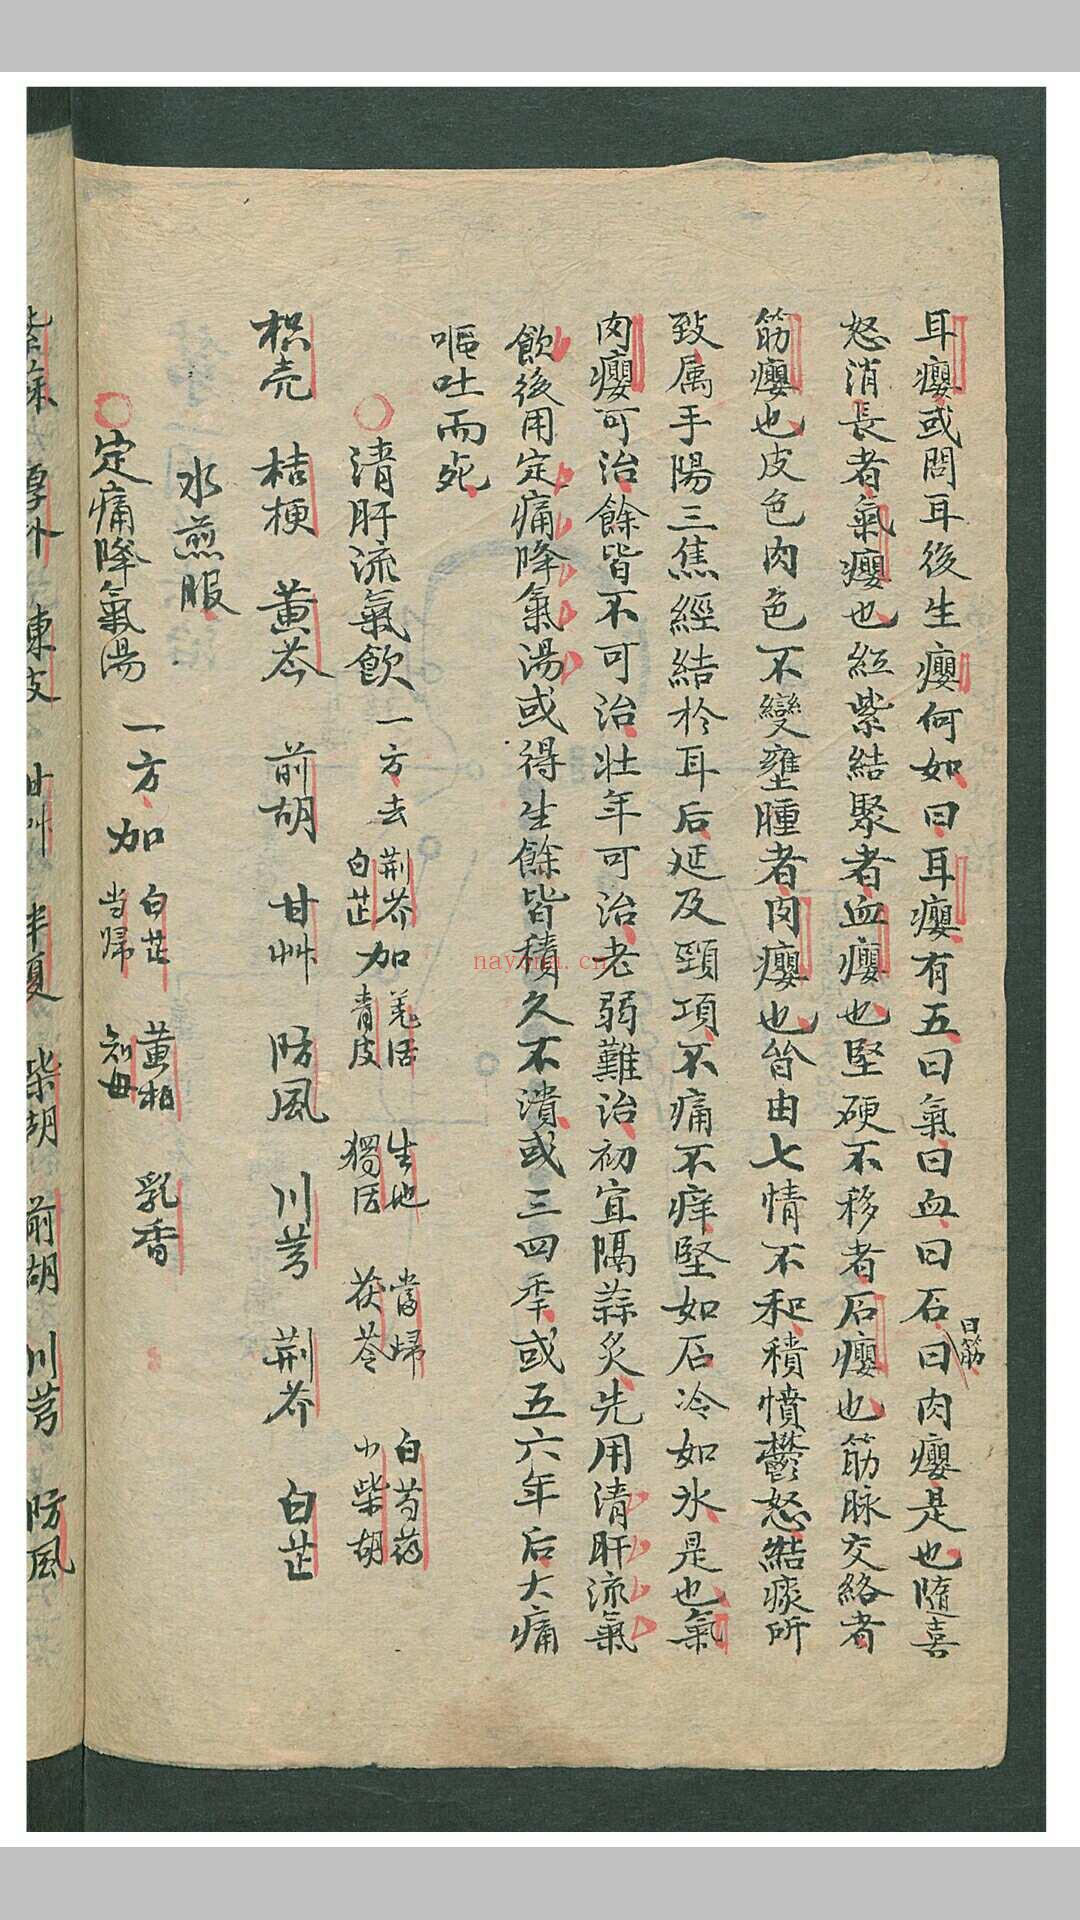 耳癭或問耳後生癭何如曰耳癭有五曰氣曰血曰石曰肉癭是也隨喜
曰筋
怒消長者氣癭也紅紫結聚者血癭也堅硬不移者石癭也筋脉交絡者
筋癭也皮色肉色不變壅腫者肉癭也皆由七情不和積憤鬱怒結痰所
致属手陽三焦經結於耳后延及頸項不痛不痒堅如石冷如氷是也氣
肉癭可治餘皆不可治壮年可治老弱難治初宜隔蒜炙先用清肝流氣
飲後用定痛降氣湯或得生餘皆積久不潰或三四季或五六年后大痛
嘔吐而死
清肝流氣飲 一方去 荆芥 白芷 加 羌活 青皮 生地 獨活 當帰 茯苓 白芍药 小柴胡
枳壳 桔梗 黄芩 前胡 甘艸 防風 川芎 荆芥 白芷
水煎服
定痛降氣湯 一方加 白芷 当帰 黄柏 知母 乳香
陳皮 甘艸 半夏 柴胡 前胡 川芎 防風
nayona.cn